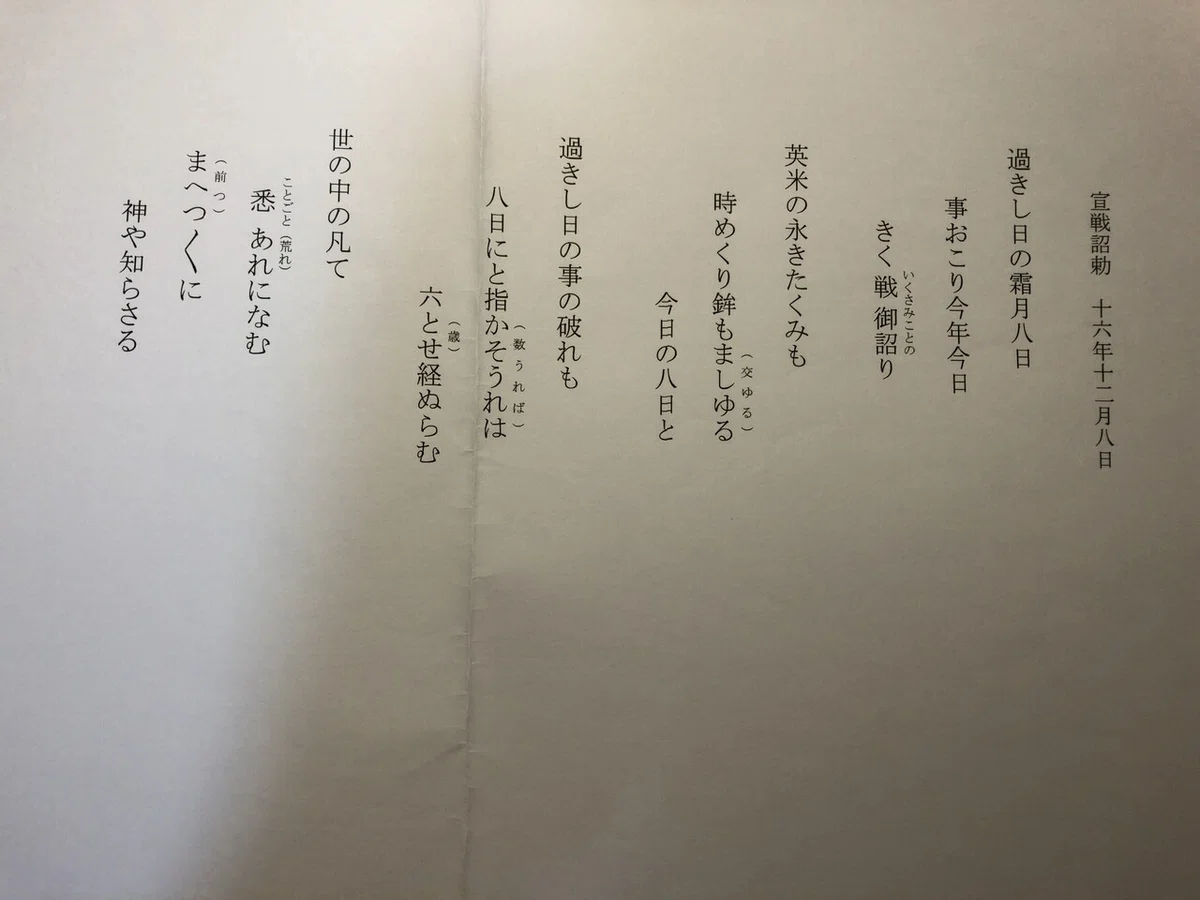 宣戦詔勅　十六年十二月八日
過きし日の霜月八日
事おこり今年今日
きく戦御詔り
いくさみことの
英米の永きたくみも
時めくり鉾もましゆる
（交ゆる）
今日の八日と
過きし日の事の破れも
八日にと指かそうれは
（数うれば）
六とせ経ぬらむ
（歳）
世の中の凡て
悉あれになむ
ことごと（荒れ）
まへつ〱に
（前つ）
神や知らさる